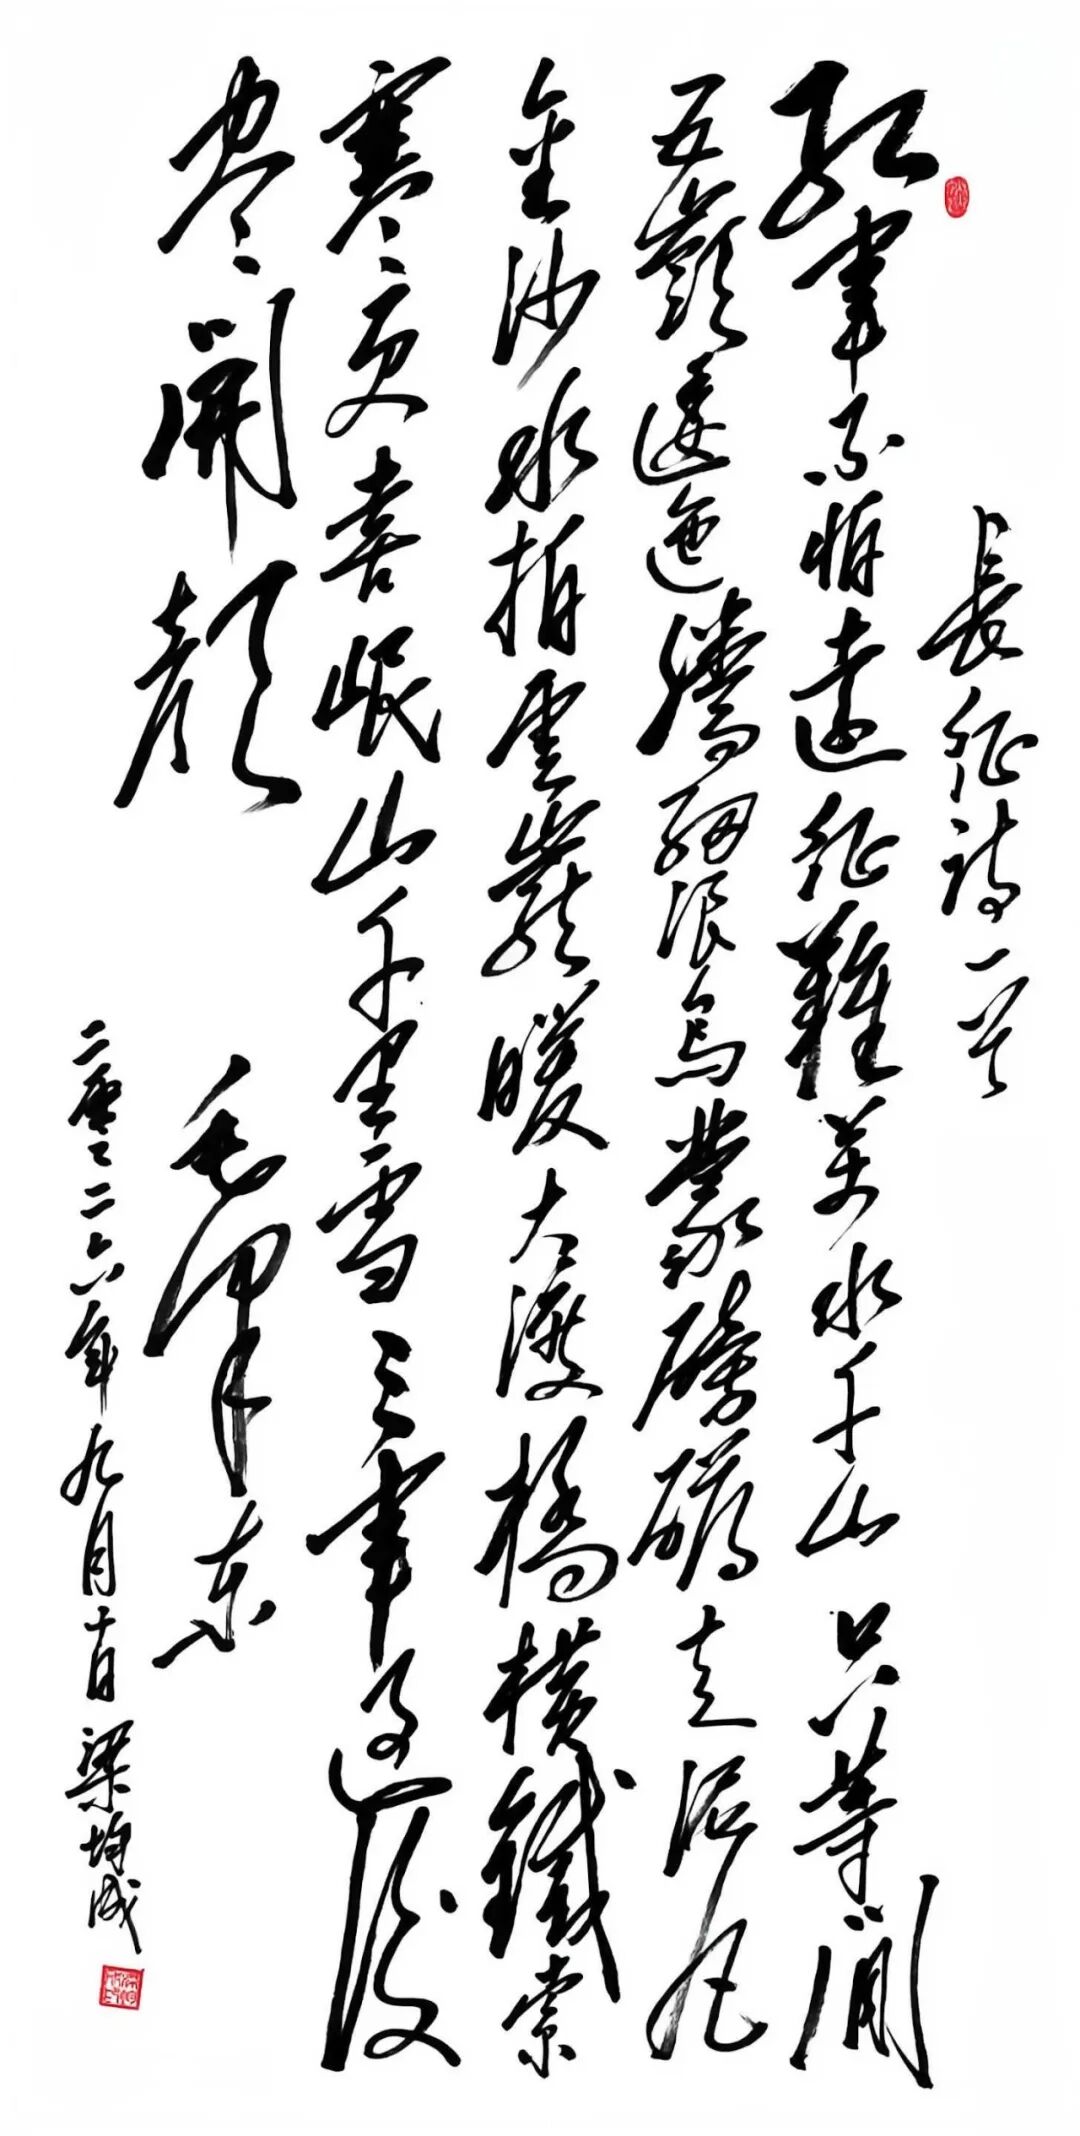 長征詩一首
红軍不怕遠征難萬水千山只等閒
五嶺逶迤騰細浪烏蒙磅礴走泥丸
金沙水拍雲巖暖大渡橋橫鐵索
寒更喜岷山千里雪三軍過後
尽開顏
毛澤東
二零二六年九月十日梁均成